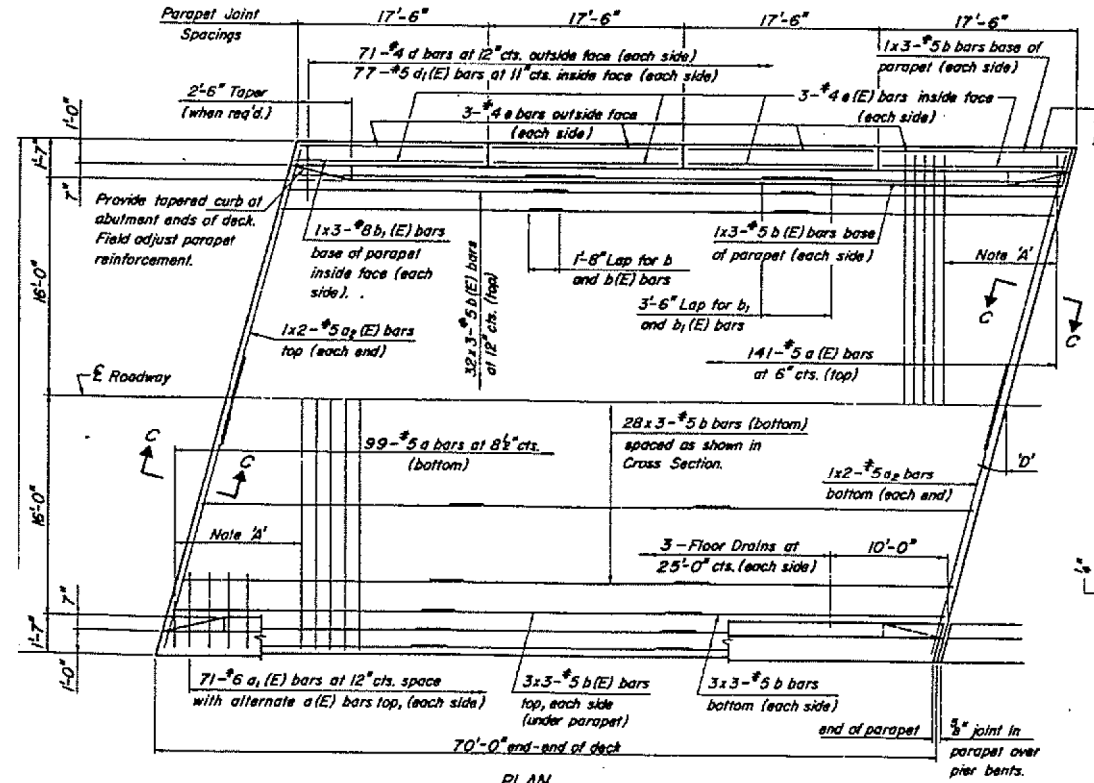 Parapet Joint
Spacings
17'-6" 17'-6" 17'-6" 17'-6"
71-#4 d bars at 12" cts. outside face (each side)
77-#5 d₁(E) bars at 11" cts. inside face (each side)
1x3-#5 b bars base of
parapet (each side)
2'-6" Taper
(when req'd.)
3-#4 e bars outside face
(each side)
3-#4 e(E) bars inside face
(each side)
1'-0"
1'-7"
7"
Provide tapered curb at
abutment ends of deck.
Field adjust parapet
reinforcement.
1x3-#8 b₁(E) bars
base of parapet
inside face (each
side).
32x3-#5 b(E) bars
at 12" cts. (top)
1'-8" Lap for b
and b(E) bars
1x3-#5 b(E) bars base
of parapet (each side)
3'-6" Lap for b₁
and b₁(E) bars
Note 'A'
C
C
16'-0"
1x2-#5 a₂(E) bars
top (each end)
141-#5 a(E) bars
at 6" cts. (top)
℄ Roadway
C
C
99-#5 a bars at 8½" cts.
(bottom)
28x3-#5 b bars (bottom)
spaced as shown in
Cross Section.
'D'
1x2-#5 a₂ bars
bottom (each end)
16'-0"
Note 'A'
3-Floor Drains at
25'-0" cts. (each side)
10'-0"
7"
1'-7"
1'-0"
71-#6 a₁(E) bars at 12" cts. space
with alternate a(E) bars top, (each side)
3x3-#5 b(E) bars
top, each side
(under parapet)
3x3-#5 b bars
bottom (each side)
end of parapet
⅝" joint in
parapet over
pier bents.
70'-0" end-end of deck
PLAN